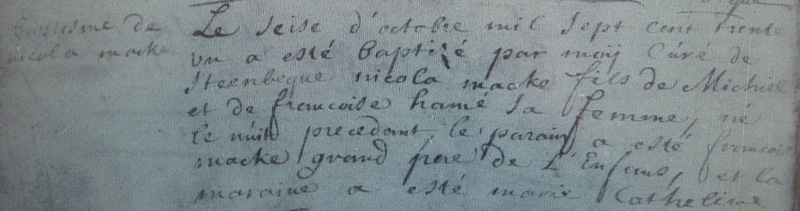 baptesme de
nicola macke
Le seise d'octobre mil sept cent trente
vn a esté baptizé par moÿ Curé de
Steenbeque nicola macke fils de Michiel
et de francoise hamé sa femme, né
le nuit precedant, le parain a esté francois
macke grand pere de L'Enfans, et la
maraine a esté marie Catheline